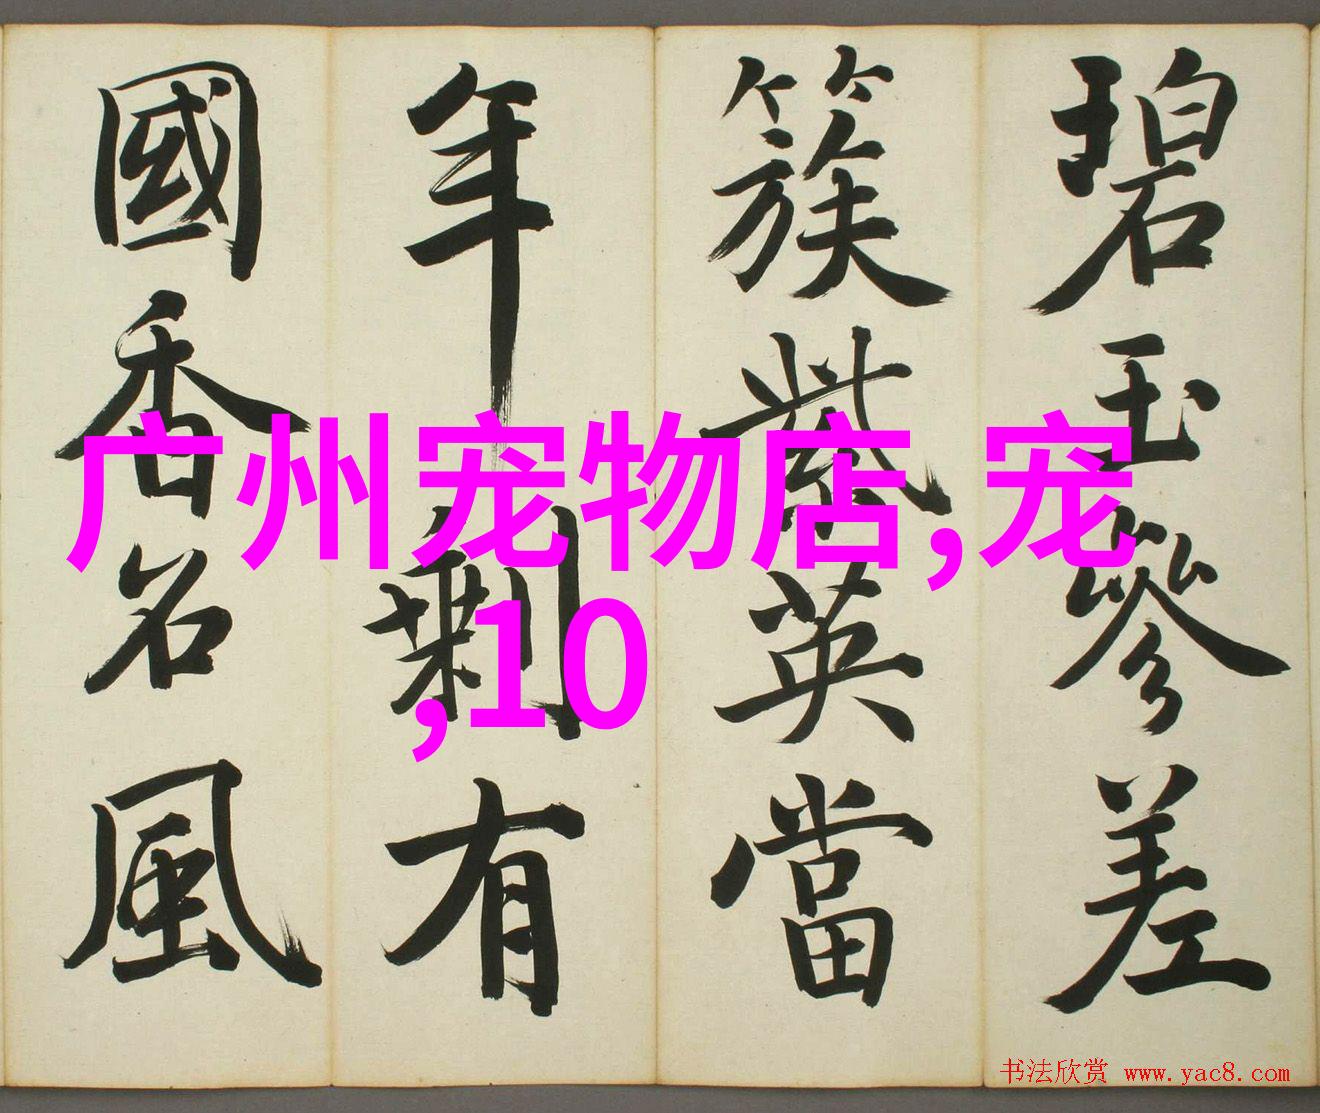 碧玉參差
簇紫英當
年剩有
國香名風
广州宠物店,宠
,10
书法欣赏 www.yac8.com